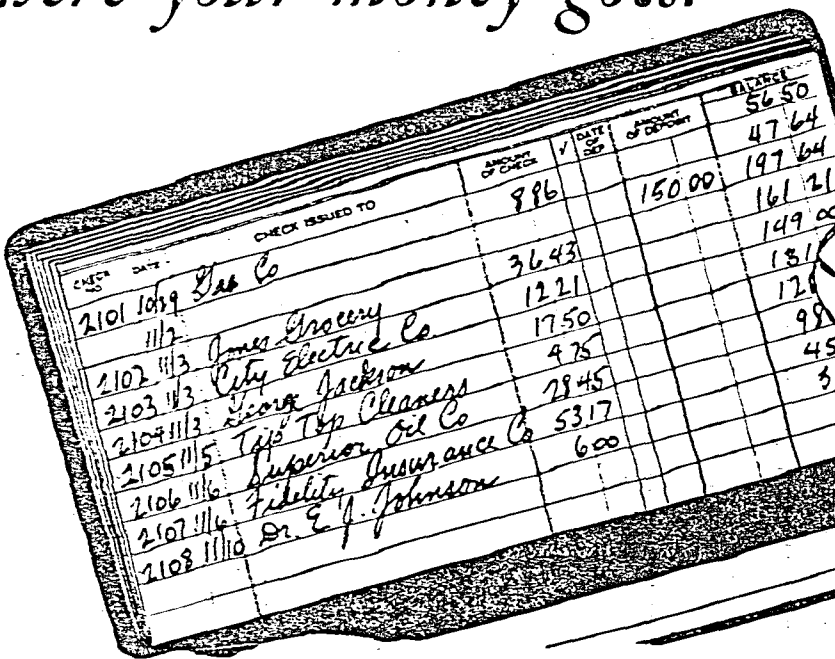 here your money goes.
CHECK NO DATE CHECK ISSUED TO AMOUNT OF CHECK √ DATE OF DEP. AMOUNT OF DEPOSIT BALANCE
56 50
2101 10/29 Gas Co 8 86 47 64
11/2 150 00 197 64
2102 11/3 Jones Grocery 36.43 161 21
2103 11/3 City Electric Co. 12 21 149 00
2104 11/3 George Jackson 17.50 131
2105 11/5 Tip Top Cleaners 4 75
2106 11/6 Superior Oil Co 28 45 98
2107 11/6 Fidelity Insurance Co 53.17 45
2108 11/10 Dr. E. J. Johnson 6 00